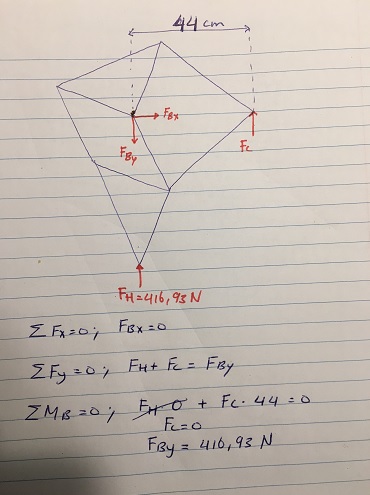 44 cm
F_Bx
F_By
F_C
F_H = 416,93 N
ΣFx=0; F_Bx=0
ΣFy=0; F_H + F_C = F_By
ΣM_B=0; F_H·0 + F_C · 44 = 0
F_C=0
F_By = 416,93 N